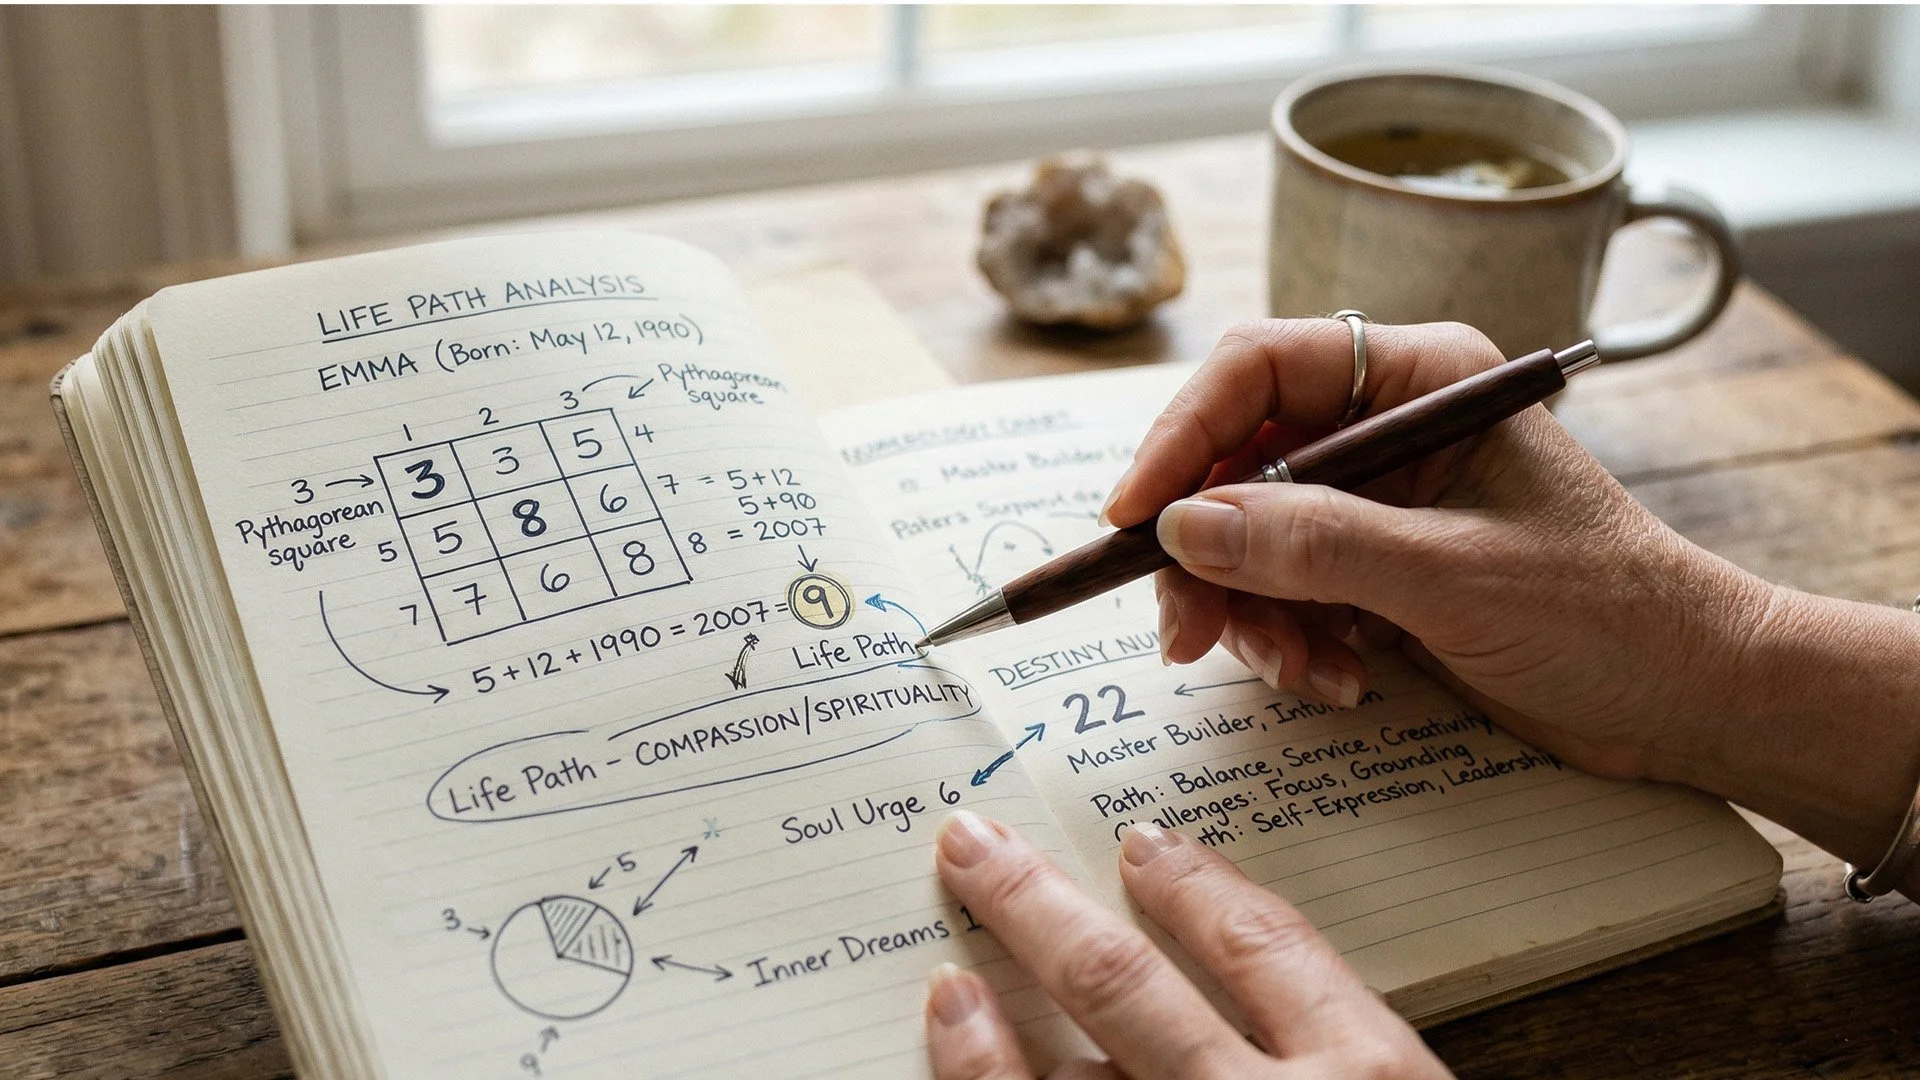 LIFE PATH ANALYSIS
EMMA (Born: May 12, 1990)
Pythagorean
square
1 2 3
3
3 3 5
4
Pythagorean
square
5
5 8 6
7 = 5+12
5+90
7
7 6 8
8 = 2007
5+12+1990 = 2007 = 9
Life Path
Life Path - COMPASSION/SPIRITUALITY
Soul Urge 6
5
3
Inner Dreams 1
9
NUMEROLOGY CHART
Master Builder
DESTINY
22
Master Builder,
Path: Balance, Service, Creativity
Challenges: Focus, Grounding
Self-Expression, Leadership